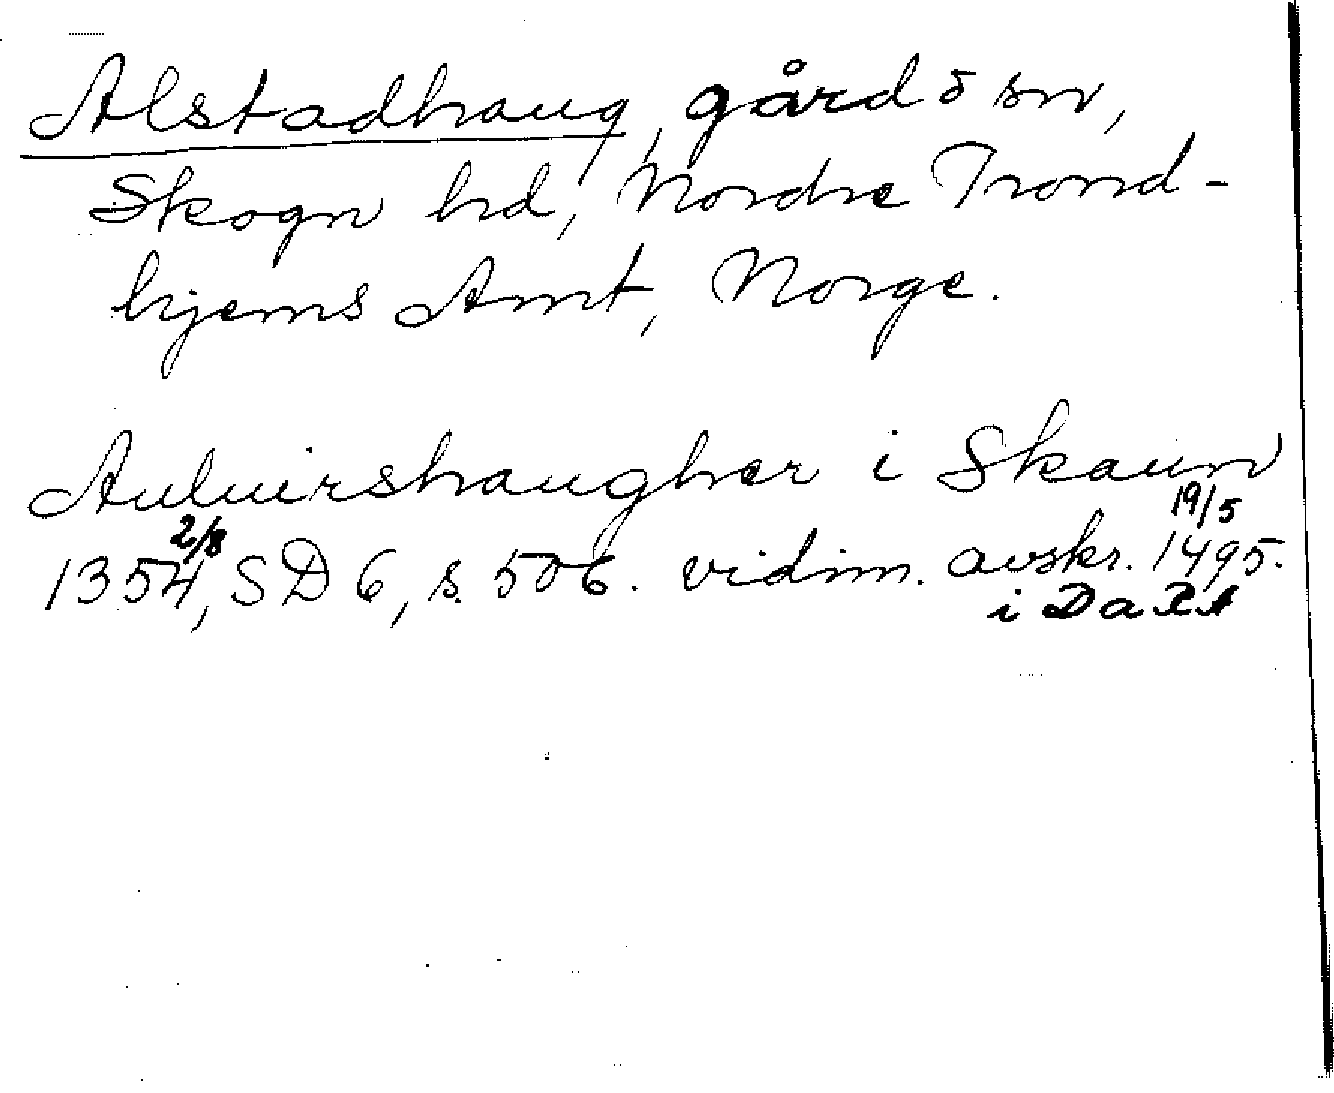 Alstadhaug, gård o sn,
Skogn hd, Nordre Trond-
hjems Amt, Norge.
Auluirshaugher i Skaun
1354 2/8, SD 6, s. 506. vidim. avskr. 1495 19/5.
i DaRA